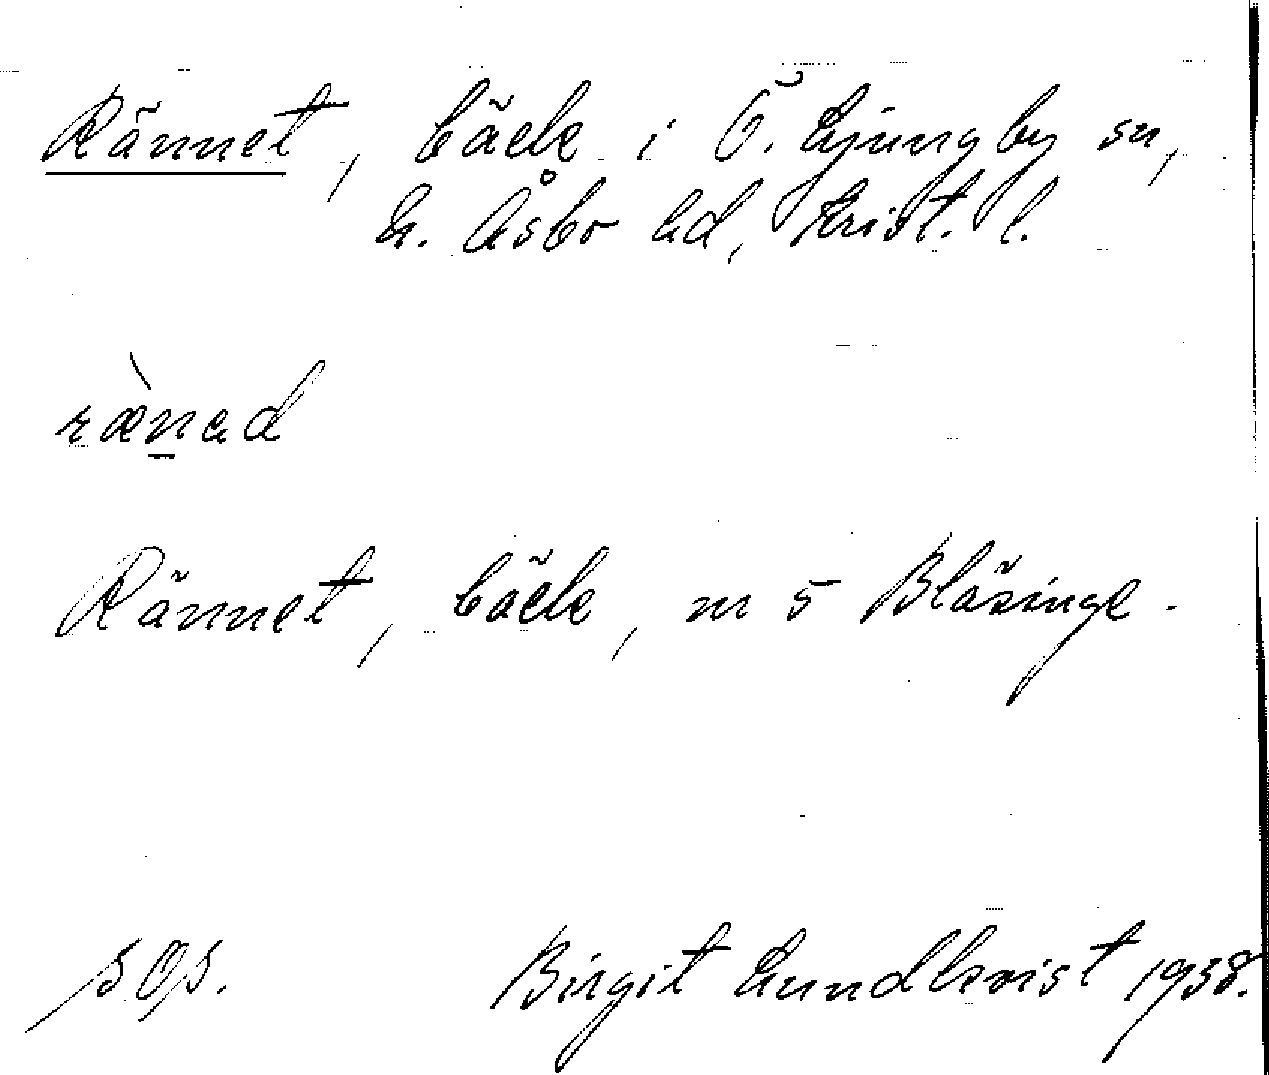 Rännet, bäck i Ö. Ljungby sn,
N. Åsbo hd, Krist. l.
Rännet, bäck, nr 5 Bläsinge.
Birgit Lundkvist 1938.